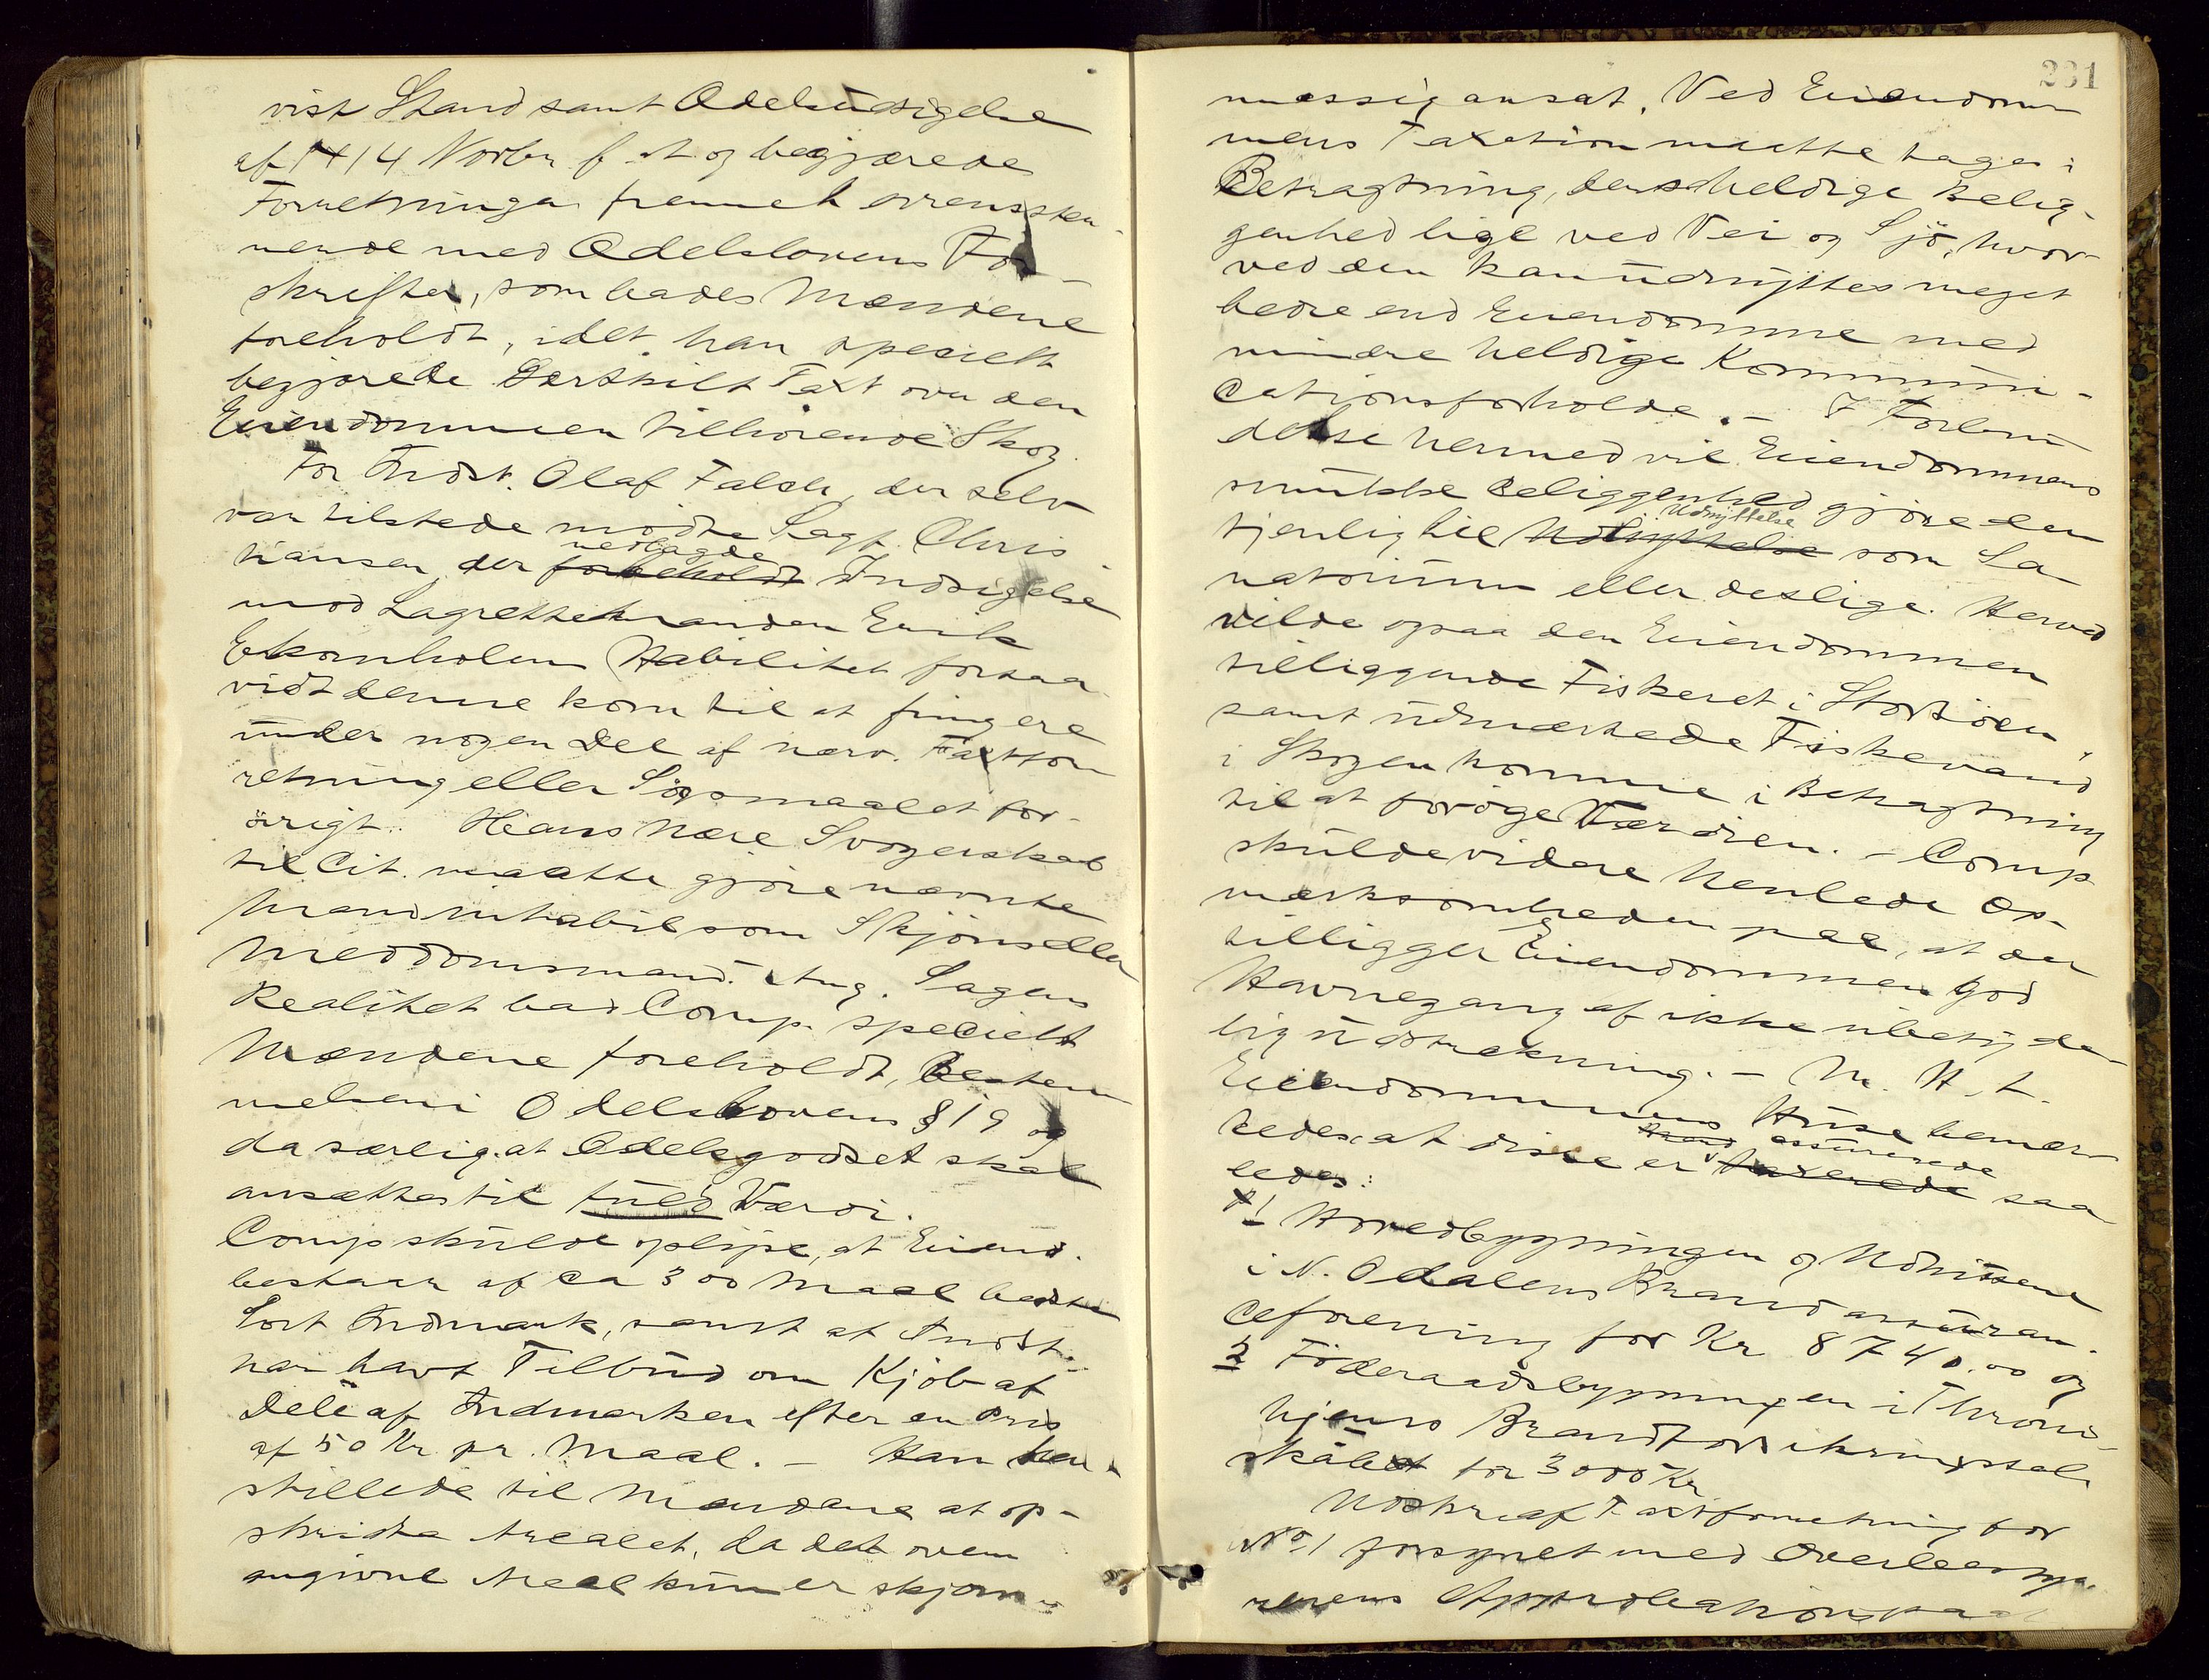 visk Stand samt Odelsudsigelse
af 14 Novbr f. A. og begjærede
Forretningen fremmet overensstem-
mende med Odelslovens For-
skrifter, som bades Mændene
foreholdt, idet han specielt
begjærede særskilt Taxt over den
Eiendommen tilhørende Skog.
For Indst. Olaf Falch, der selv
var tilstede mødte Sagf. Chris
hansen, der forbeholdt nedlagde Indsigelse
mod Lagrettemanden Erik
Ekornholens Habilitet forsaa-
vidt denne kom til at fungere
under nogen Del af nærv. Taxtfor
retning eller Søgsmaalet for-
øvrigt. Hans nære Svogerskab
til Cit. maatte gjøre nævnte
Mand inhabil som Skjöns eller
Meddomsmand. Ang. Sagens
Realitet bad Comp. specielt
Mændene foreholdt, Bestem
melsen i Odelslovens § 19 og
da særlig at Odelsgodset skal
ansættes til fuld Værdi.
Comp skulde oplyse, at Eiend.
bestaar af ca 300 Maal bedste
Sort Indmark, samt at Indst.
har havt Tilbud om Kjöb af
Dele af Indmarken efter en Pris
af 50 Kr pr. Maal. – Han hen-
stillede til Mændene at op-
skridte Arealet, da det oven
angivne Areal kun er skjöns-
231
mæssig ansat. Ved Eiendom
mens Taxation maatte tages i
Betragtning, dens heldige Belig-
genhed lige ved Vei og Sjö, hvor-
ved den kan udnyttes meget
bedre end Eiendomme med
mindre heldige Kommuni-
cationsforholde. – I Forbin
delse hermed vil Eiendommens
smukke Beliggenhed gjöre den
tjenlig til Udnyttelse som Sa-
natorium eller deslige. Herved
vilde ogsaa den Eiendommen
tilliggende Fiskeret i Storsjöen,
samt udmærkede Fiskevand
i Skogen komme i Betragtning
til at foröge Værdien. – Comp
skulde videre henlede Op-
mærksomheden paa, at der
tilligger Eiendommen god
Havnegang af ikke ubetyde-
lig Udstrækning. – M. H. t.
Eiendommens Huse bemær
kedes at disse er taxerede assurerede saa
ledes:
1 Hovedbygningen og Udhusene
i N. Odalens Brandassuran-
ceforening for Kr 8740.00 og
2 Föderaadsbygningen i Thrond-
hjems Brandforsikringssel-
skabet for 3000 Kr
Udskr af Taxtforretning for
No 1 forsynet med Overlensm.